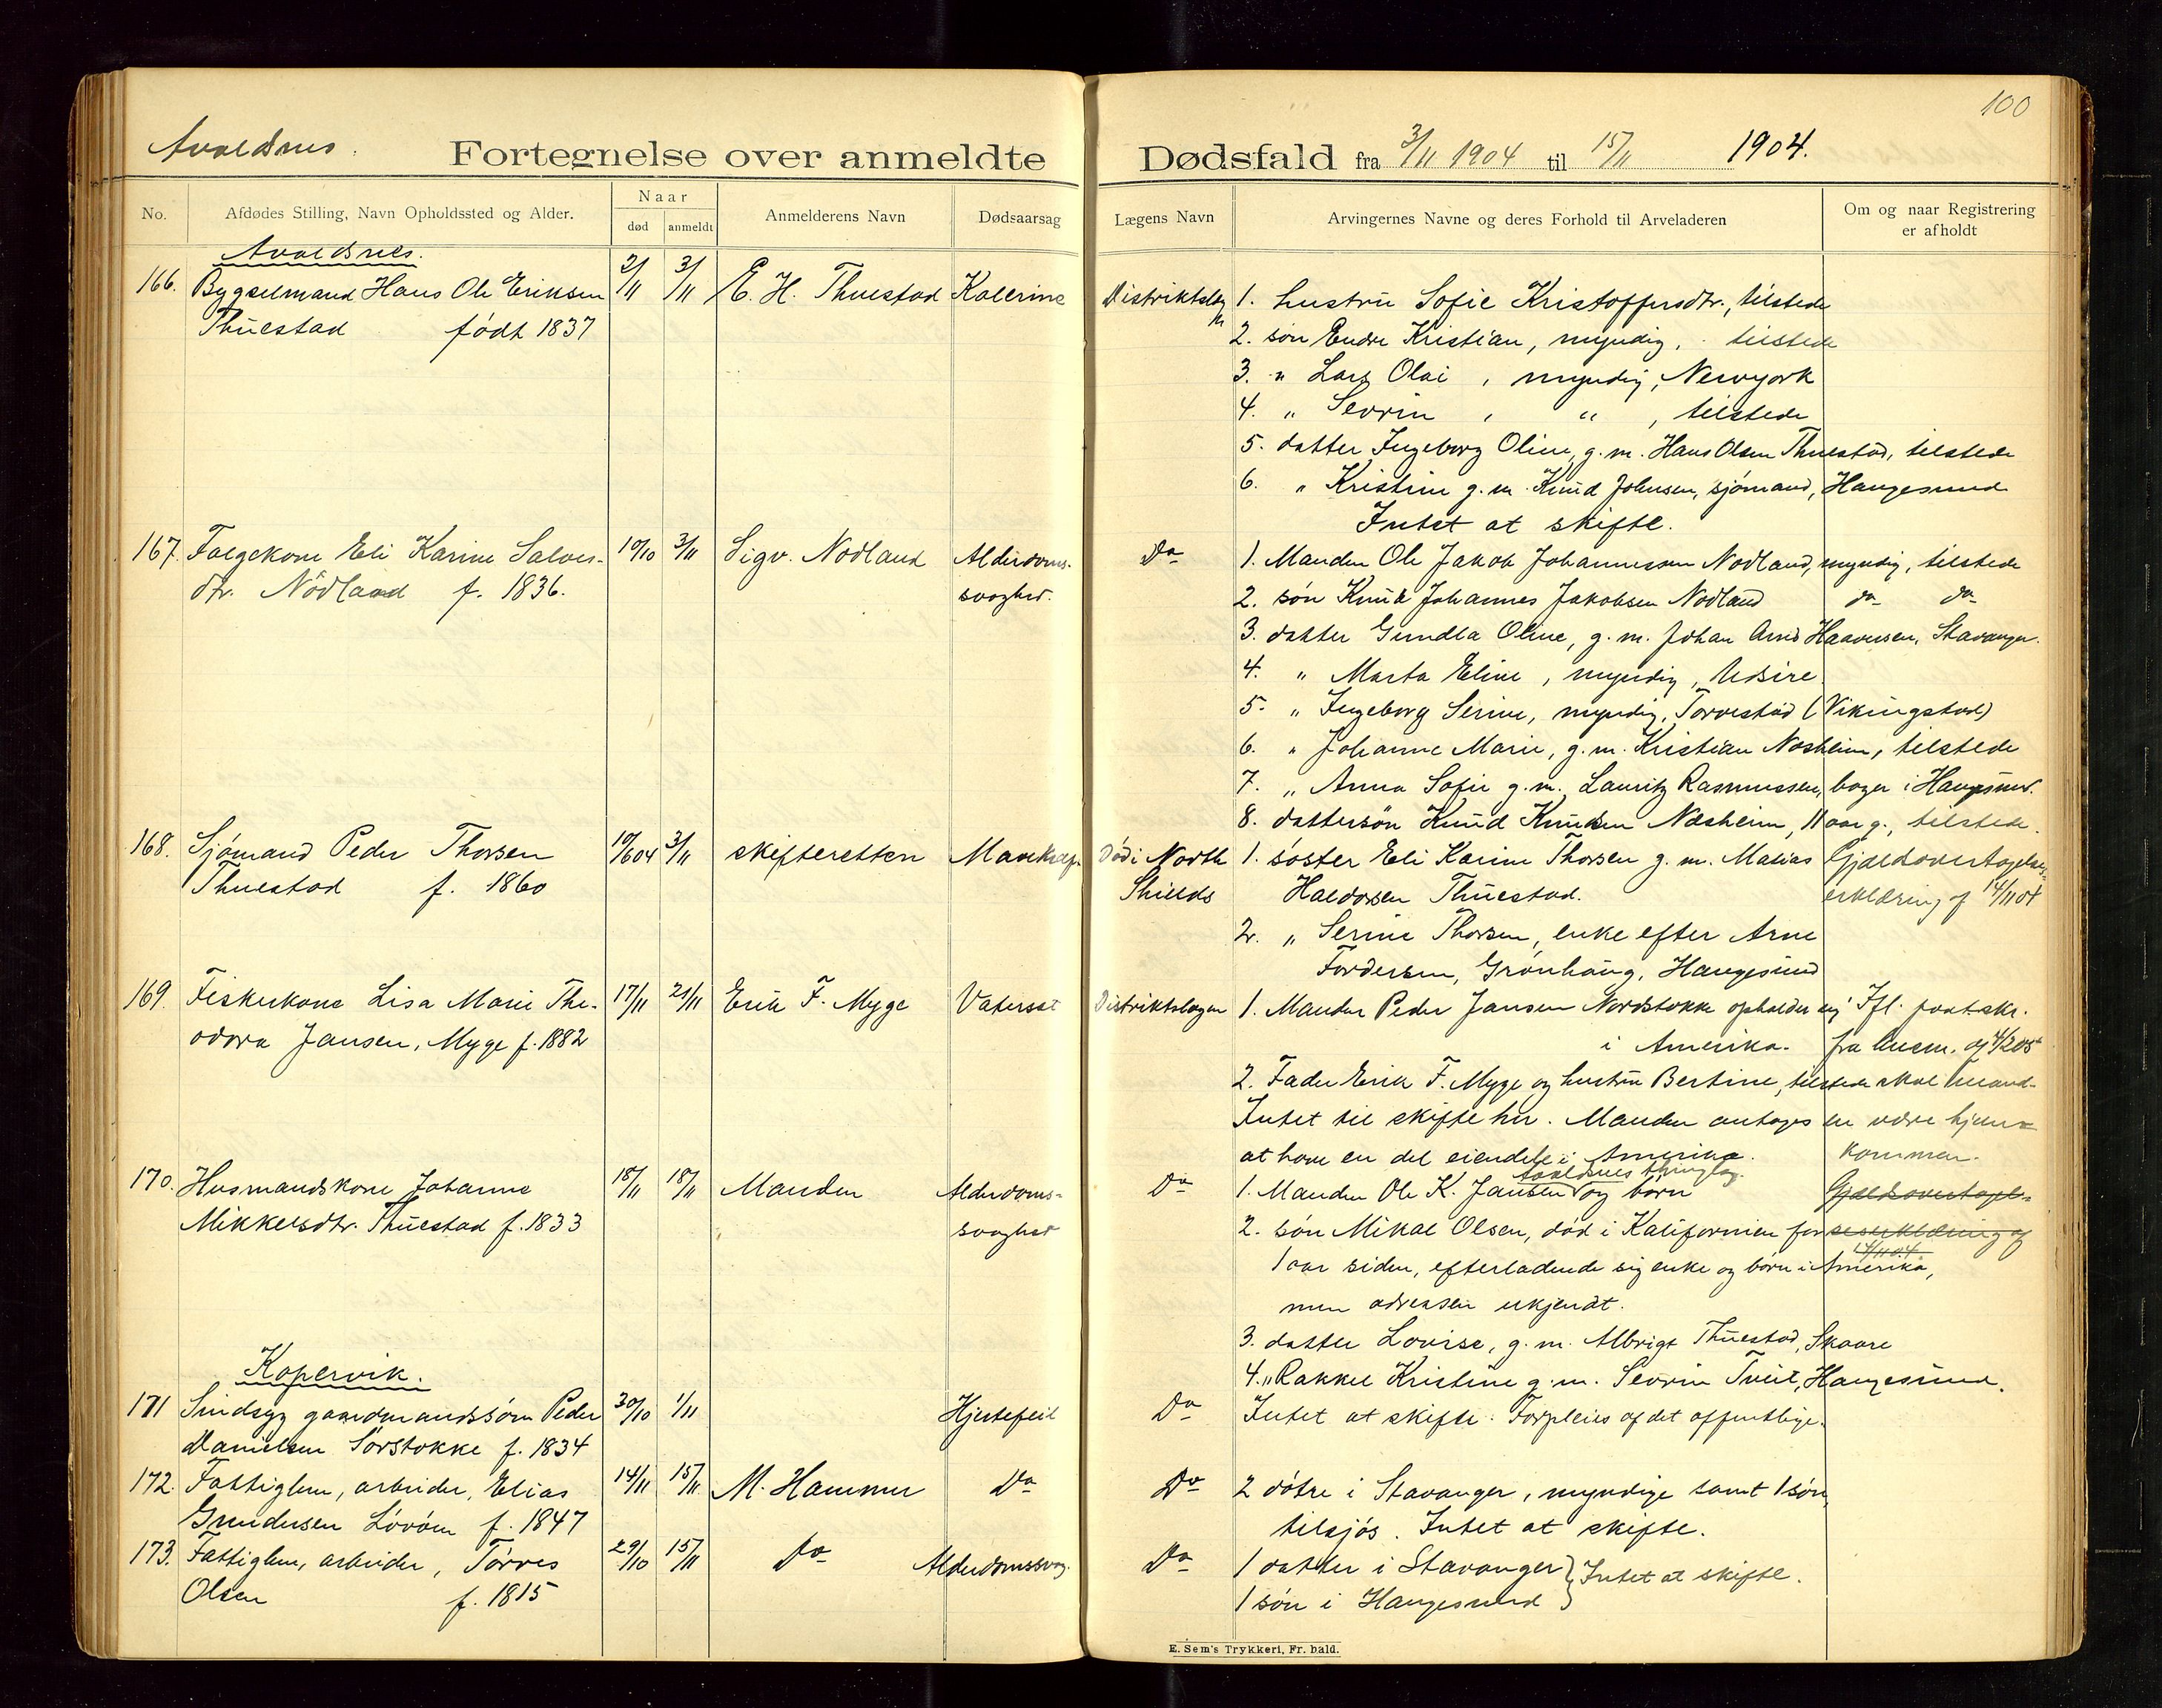 100
Avaldsnes.
Fortegnelse over anmeldte Dødsfald fra 3/11 1904 til 15/11 1904.
No.
Afdødes Stilling, Navn Opholdssted og Alder.
Naar
død
anmeldt
Anmelderens Navn
Dødsaarsag
Lægens Navn
Arvingernes Navne og deres Forhold til Arveladeren
Om og naar Registrering
er afholdt
Avaldsnes.
166. Bygselmand Hans Ole Eriksen 2/11 3/11 E. H. Thuestad Kolerine
Thuestad født 1837
1. hustru Sofie Kristoffersdtr., tilstede
2. søn Endre Kristian, myndig, tilstede
3. " Lars Olai, myndig, Newyork
4. " Sevrin, " , tilstede
5. datter Ingeborg Oline, g. m. Hans Olsen Thuestad, tilstede
6. " Kristine g. m. Knud Johnsen, sjømand, Haugesund
Intet at skifte.
167. Folgekone Eli Karine Salves- 10/10 3/11 Sigv. Nodland Alderdoms-
dtr. Nødland f. 1836. svaghed.
Do 1. Manden Ole Jakob Johannessen Nodland, myndig, tilstede
2. søn Knud Johannes Jakobsen Nodland do do
3. datter Gundla Oline, g. m. Johan Arnd Haaversen, Stavanger.
4. " Marta Eline, myndig, Udsire.
5. " Ingeborg Serine, myndig, Torvestad (Vikingstad)
6. " Johanne Marie, g. m. Kristian Nosheim, tilstede
7. " Anna Sofie g. m. Lauritz Rasmussen, bager i Haugesund.
8. dattersøn Knud Knudsen Næsheim, 11 aar g., tilstede.
168. Sjømand Peder Thorsen 10/6 04 3/11 skifteretten
Thuestad f. 1860
Død i North
Shields
1. søster Eli Karine Thorsen g. m. Matias
Haldorsen Thuestad.
2. " Serine Thorsen, enke efter Arne
Tordersen, Grønhaug, Haugesund
Gjældsovertagelses-
erklæring af 14/11 04
169. Fiskerkone Lisa Marie The- 17/11 21/11 Erik F. Myge Vatersot
odora Jansen, Myge f. 1882
Distriktslægen 1. Manden Peder Jansen Nordstokke opholder sig
i Amerika.
2. Fader Erik F. Myge og hustru Bertine, tilstede
Intet til skifte her. Manden antages
at have en del eiendele i Amerika.
Ifl. paategn.
skal Mand-
en være hjem-
kommen.
170. Husmandskone Johanne 18/11 18/11 Manden Alderdoms-
Mikkelsdtr. Thuestad f. 1833 svaghed
Avaldsnes thinglag.
Do 1. Manden Ole K. Jansen og børn
2. søn Mikal Olsen, død i Kalifornien for
1 aar siden, efterladende sig enke og børn i Amerika,
men adressen ukjendt.
3. datter Lovise, g. m. Albrigt Thuestad, Skaare
4. " Rakkel Kristine g. m. Sevrin Tveit, Haugesund.
Gjældsovertagel-
seserklæring af
14/11 04
Kopervik.
171 Sindsyg gaardmandssøn Peder 30/10 1/11 Hjertefeil
Danielsen Sørstokke f. 1834
Do Intet at skifte. Forpleies af det offentlige.
172. Fattiglem, arbeider, Elias 14/11 15/11 M. Hammer Do
Gundersen Løvøen f. 1847
Do 2 døtre i Stavanger, myndige samt 1 søn,
tilsjøs. Intet at skifte.
173. Fattiglem, arbeider, Torres 29/10 15/11 Do Alderdomssvag.
Olsen f. 1815
Do 1 datter i Stavanger } Intet at skifte.
1 søn i Haugesund
E. Sem's Trykkeri, Fr. hald.